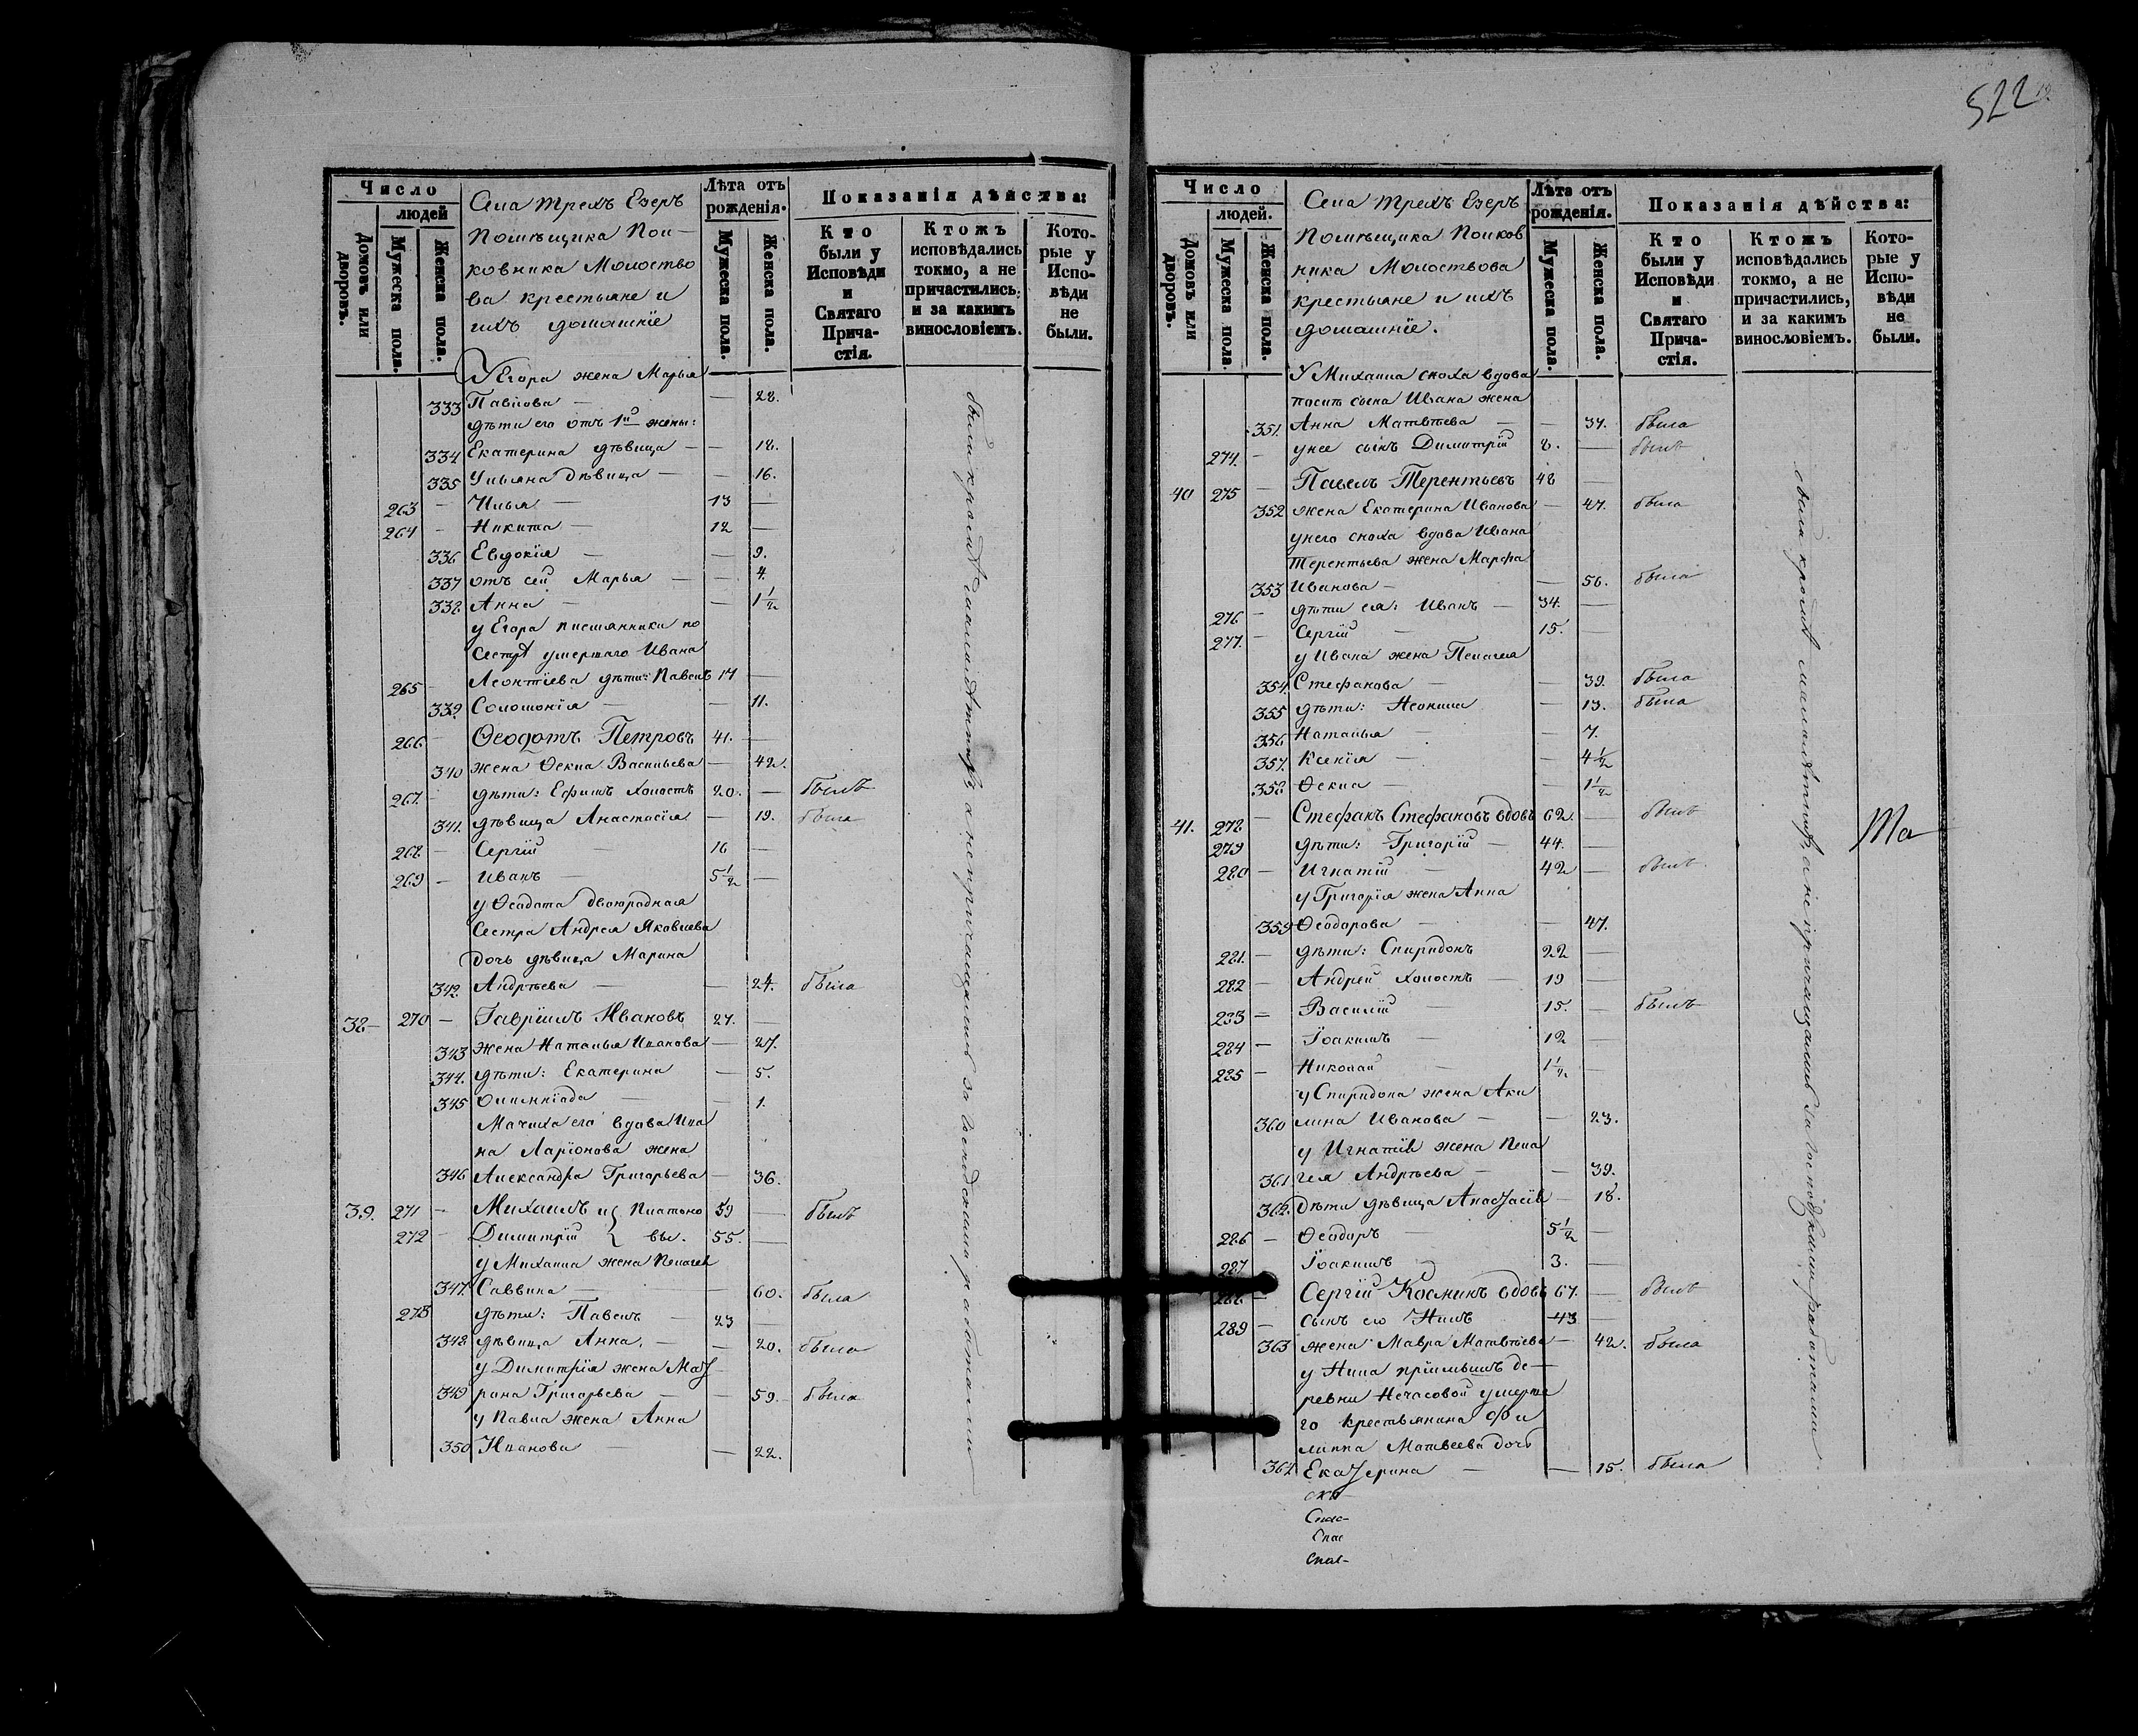 522
Число
людей
Домовъ или дворовъ.
Мужеска пола.
Женска пола.
Села Трехъ Езеръ
Помѣщика Пол-
ковника Молоство
ва крестьяне и
ихъ домашніе
Лѣта отъ рожденія.
Мужеска пола.
Женска пола.
Показанія дѣйства:
Кто были у Исповѣди и Святаго Причастія.
Ктожъ исповѣдались токмо, а не причастились, и за какимъ винословіемъ.
Которые у Исповѣди не были.
У Егора жена Марья
333 Павлова — — 28.
дѣти его отъ 1й жены:
334 Екатерина дѣвица — — 18.
335 Ульяна дѣвица — — 16.
263 — Илья — 13 —
264 — Никита — 12 —
336 Евдокія — — 9.
337 отъ сей Марья — — 4.
338 Анна — — 1 1/2
у Егора племянники по
сестрѣ умершаго Ивана
265 — Леонтіева дѣти: Павелъ 14 —
339. Соломонія — — 11.
266 — Ѳеодотъ Петровъ 41. —
340 жена Ѳекла Васильева — 42.
267. — дѣти: Ефимъ холостъ 20. — былъ
341. дѣвица Анастасія — 19. была
268 — Сергій — 16 —
269 — Иванъ — 5 1/2 —
у Ѳеодота двоюродная
сестра Андрея Яковлева
дочь дѣвица Марина
342. Андрѣева — — 24. была
38 — 270 — Гавріилъ Ивановъ 27. —
343 жена Наталья Иванова — 27.
344. дѣти: Екатерина — 5.
345 Олимпіада — — 1.
Мачиха его вдова Ива
на Ларіонова жена
346 Александра Григорьева — 36.
39. 271 — Михаилъ и Платоно 59 — былъ
272 — Димитрій вы. 55. —
у Михаила жена Пелагея
347. Саввина — — 60. была
273 дѣти: Павелъ — 23 —
348 дѣвица Анна. — 20. была
у Димитрія жена Мат
349 рона Григорьева — — 59. была
у Павла жена Анна
350 Иванова — — 22.
были кромѣ малолѣтнихъ, а не причащались за господскими работами
Число
людей.
Домовъ или дворовъ.
Мужеска пола
Женска пола.
Села Трехъ Езеръ
Помѣщика Полков
ника Молоствова
крестьяне и ихъ
домашніе.
Лѣта отъ рожденія.
Мужеска пола.
Женска пола.
Показанія дѣйства:
Кто были у Исповѣди и Святаго Причастія.
Ктожъ исповѣдались токмо, а не причастились, и за какимъ винословіемъ.
Которые у Исповѣди не были.
У Михаила сноха вдова
послѣ сына Ивана жена
351. Анна Матвѣева — — 34. была
274. — у нее сынъ Димитрій 8. — былъ
40 275 — Павелъ Терентьевъ 48 —
352 жена Екатерина Иванова — 47. была
у него сноха вдова Ивана
Терентьева жена Марфа
353 Иванова — — 56. была
276 — дѣти ея: Иванъ — 34. —
277. — Сергій — 15. —
у Ивана жена Пелагея
354. Стефанова — — 39. была
355 дѣти: Неонила — 13. была
356 Наталья — — 7.
357. Ксенія — — 4 1/2
358 Ѳекла — — 1 1/2
41. 278 — Стефанъ Стефановъ вдовъ 62. — былъ
279 дѣти: Григорій — 44. —
280 — Игнатій — 42 — былъ
у Григорія жена Анна
359 Ѳеодорова — — 47.
281. — дѣти: Спиридонъ 22 —
282 — Андрей холостъ — 19 —
283 — Василій — 15. — былъ
284 — Іоакимъ — 12 —
285 — Николай — 1 1/2 —
у Спиридона жена Аки
360 лина Иванова — — 23.
у Игнатія жена Пела
361 гея Андрѣева — — 39.
362. дѣти дѣвица Анастасія — 18.
286 — Ѳеодоръ — 5 1/2 —
287 Іоакимъ 3. —
288 — Сергій Косминъ вдовъ 67. — былъ
289 — сынъ его Нилъ 43 —
363 жена Мавра Матвѣева — 42. была
у Нила пріимышъ де-
ревни Нечасовой умерша
го крестьянина Фи
липпа Матвеева дочь
364 Екатерина — — 15. была
Спас-
Спас
Спас-
были кромѣ малолѣтнихъ, а не причащались за господскими работами